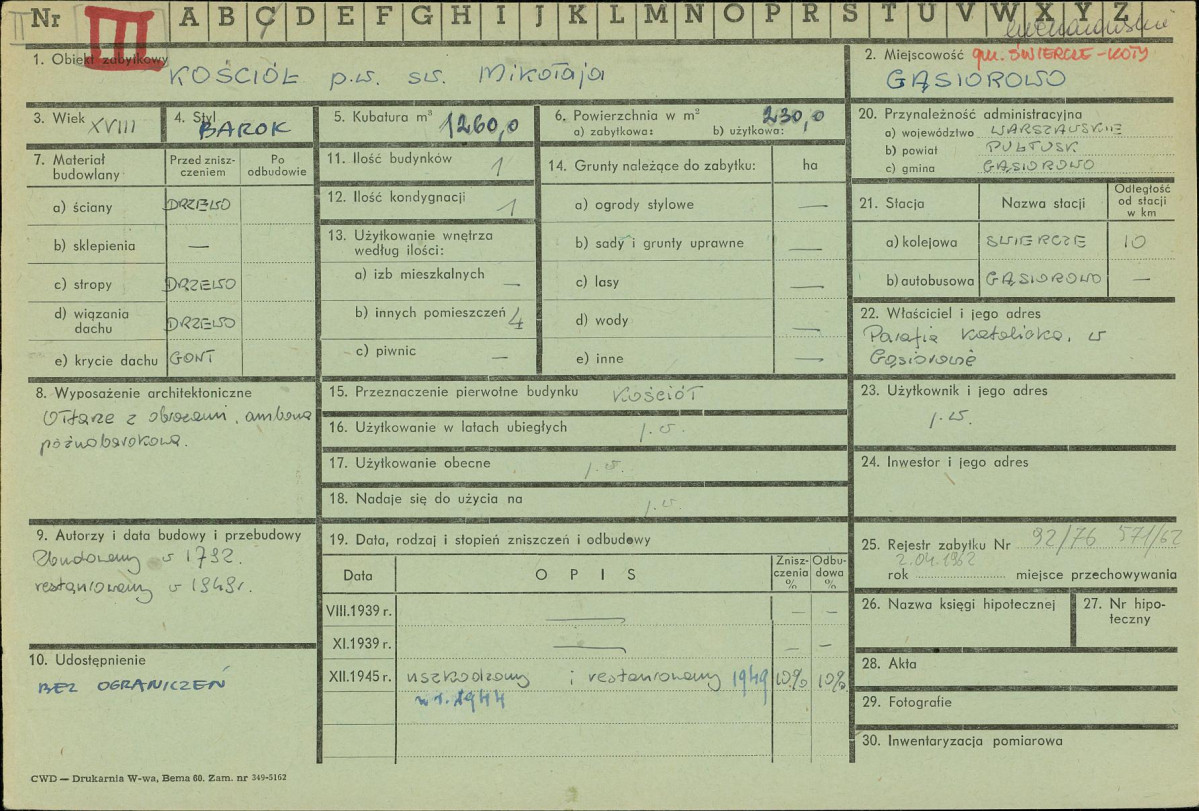 Nr III A B C D E F G H I J K L M N O P R S T U V W X Y Z
1. Obiekt zabytkowy
KOŚCIÓŁ p.w. sw. Mikołaja
2. Miejscowość gm. ŚWIERCZE-KOTY
GĄSIOROWO
3. Wiek XVIII
4. Styl BAROK
5. Kubatura m³ 1260,0
6. Powierzchnia w m² 230,0
a) zabytkowa: b) użytkowa:
20. Przynależność administracyjna
a) województwo WARSZAWSKIE
b) powiat PUŁTUSK
c) gmina GĄSIOROWO
7. Materiał budowlany
Przed zniszczeniem
Po odbudowie
a) ściany DRZEWO
b) sklepienia —
c) stropy DRZEWO
d) wiązania dachu DRZEWO
e) krycie dachu GONT
11. Ilość budynków 1
12. Ilość kondygnacji 1
13. Użytkowanie wnętrza
według ilości:
a) izb mieszkalnych —
b) innych pomieszczeń 4
c) piwnic —
14. Grunty należące do zabytku: ha
a) ogrody stylowe —
b) sady i grunty uprawne —
c) lasy —
d) wody —
e) inne —
21. Stacja Nazwa stacji Odległość od stacji w km
a) kolejowa SWIERCZE 10
b) autobusowa GĄSIOROWO —
22. Właściciel i jego adres
Parafia Katolicka, w
Gąsiorowie
8. Wyposażenie architektoniczne
Ołtarze z obrazami, ambona
późnobarokowa.
15. Przeznaczenie pierwotne budynku KOŚCIÓŁ
16. Użytkowanie w latach ubiegłych j.w.
17. Użytkowanie obecne j.w.
18. Nadaje się do użycia na j.w.
23. Użytkownik i jego adres
j.w.
24. Inwestor i jego adres
9. Autorzy i data budowy i przebudowy
Zbudowany w 1792.
restaurowany w 1949r.
10. Udostępnienie
BEZ OGRANICZEŃ
19. Data, rodzaj i stopień zniszczeń i odbudowy
Data OPIS Zniszczenia % Odbudowa %
VIII.1939 r. — — —
XI.1939 r. — — —
XII.1945 r. uszkodzony i restaurowany 1949 10% 10%
w r. 1944
25. Rejestr zabytku Nr 92/76 571/62
2.04.1962
rok miejsce przechowywania
26. Nazwa księgi hipotecznej
27. Nr hipoteczny
28. Akta
29. Fotografie
30. Inwentaryzacja pomiarowa
CWD — Drukarnia W-wa, Bema 60. Zam. nr 349-5162